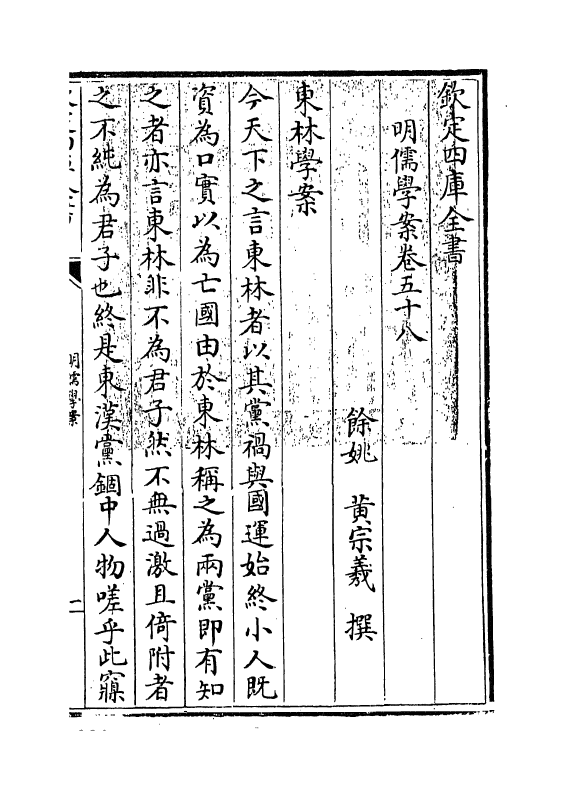 欽定四庫全書
明儒學案卷五十八
餘姚 黄宗羲 撰
東林學案
今天下之言東林者以其黨禍與國運始終小人既
資為口實以為亡國由於東林稱之為兩黨即有知
之者亦言東林非不為君子然不無過激且倚附者
之不純為君子也終是東漢黨錮中人物嗟乎此寱
明儒學案